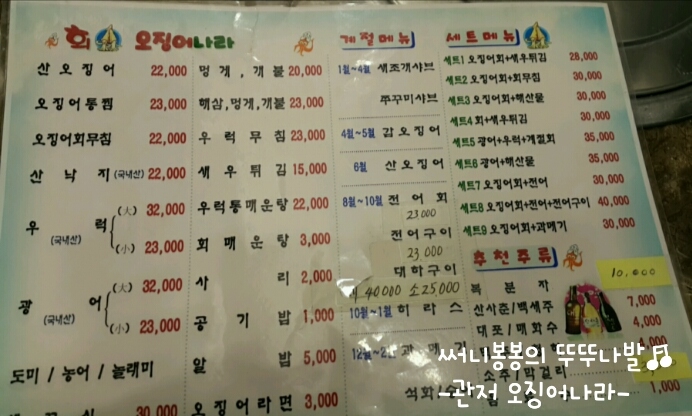 회 오징어나라
산오징어 22,000
오징어통찜 23,000
오징어회무침 22,000
산낙지(국내산) 22,000
우럭(국내산) (大) 32,000
(小) 23,000
광어(국내산) (大) 32,000
(小) 23,000
도미 / 농어 / 놀래미
30,000
멍게,개불 20,000
해삼,멍게,개불 23,000
우럭무침 23,000
새우튀김 15,000
우럭통매운탕 22,000
회매운탕 3,000
사리 2,000
공기밥 1,000
알밥 5,000
오징어라면 3,000
계절메뉴
1월~4월 새조개샤브
쭈꾸미샤브
4월~5월 갑오징어
6월 산오징어
8월~10월 전어회
23000
전어구이
23,000
대하구이
40000 소25,000
10월~1월 히라스
12월~2월 과메기
석화/
세트메뉴
세트1 오징어회+새우튀김 28,000
세트2 오징어회+회무침 30,000
세트3 오징어회+해산물 30,000
세트4 회+새우튀김 30,000
세트5 광어+우럭+계절회 35,000
세트6 광어+해산물 35,000
세트7 오징어회+전어 30,000
세트8 오징어회+전어+전어구이 40,000
세트9 오징어회+과메기 30,000
추천주류
복분자 10,000
산사춘/백세주 7,000
대포/매화수 4,000
소주/막걸리
1,000
써니봉봉의 뚜뚜나발♬
-관저 오징어나라-